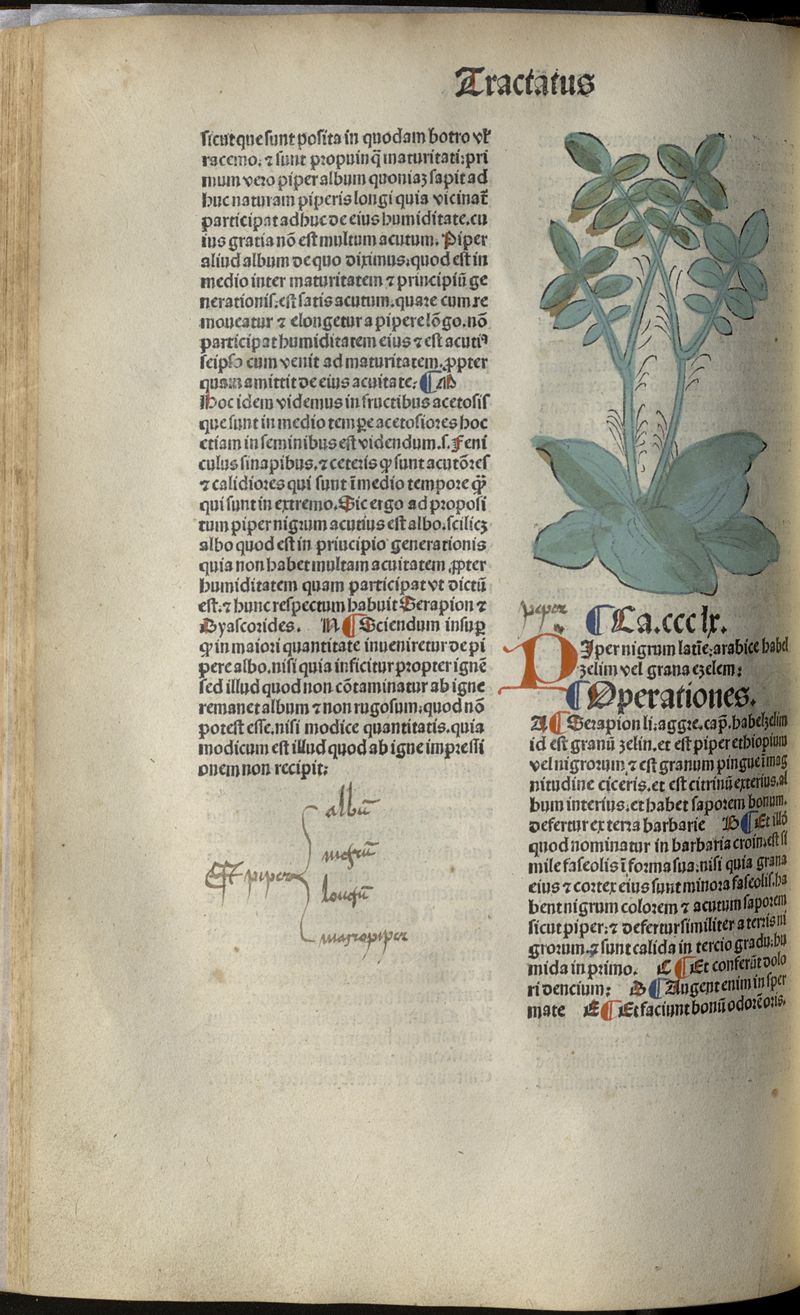 Tractatus
sicut que sunt posita in quodam botro vł
racemo. ⁊ sunt propuinq̄ maturitati: pri
mum vero piper album quoniaꝫ sapit ad
huc naturam piperis longi quia vicinat̄
participat adhuc de eius humiditate. cu
ius gratia nō est multum acutum. Piper
aliud album de quo diximus. quod est in
medio inter maturitatem ⁊ principiū ge
nerationis. est satis acutum. quare cum re
moueatur ⁊ elongetur a pipere lōgo. nō
participat humiditatem eius ⁊ est acutiꝰ
seipso cum venit ad maturitatem. ꝓpter
quam amittit de eius acuitate: ¶ M
Hoc idem videmus in fructibus acetosis
que sunt in medio temꝑe acetosiores hoc
etiam in seminibus est videndum. s. Feni
culus sinapibus. ⁊ ceteris ꝙ sunt acutōres
⁊ calidiores qui sunt ī medio tempore ꝙ̄
qui sunt in extremo. Sic ergo ad proposi
tum piper nigrum acutius est albo. scilicꝫ
albo quod est in principio generationis
quia non habet multam acuitatem ꝓpter
humiditatem quam participat vt dictū
est. ⁊ hunc respectum habuit Serapion ⁊
Dyascorides. N ¶ Sciendum insuꝑ
ꝙ in maiori quantitate inueniretur de pi
pere albo. nisi quia inficitur propter ignē
sed illud quod non cōtaminatur ab igne
remanet album ⁊ non rugosum. quod nō
potest esse. nisi modice quantitatis. quia
modicum est illud quod ab igne impressi
onem non recipit:
albū
nigrū
Est piper
longū
macropiper
piper
¶ Ca. ccclx.
PIper nigrum latīe. arabice habel
zelim vel grana ezelem:
¶ Operationes.
A ¶ Serapion li. aggre. cap̄. habelzelim
id est granū zelin. et est piper ethiopium
vel nigrorum. ⁊ est granum pingue ī mag
nitudine ciceris. et est citrinū exterius. al
bum interius. et habet saporem bonum.
defertur ex terra barbarie B ¶ Et illō
quod nominatur in barbaria croin. est si
mile faseolis ī forma sua. nisi quia grana
eius ⁊ cortex eius sunt minora faseolis. ha
bent nigrum colorem ⁊ acutum saporem
sicut piper: ⁊ defertur similiter a terris ni
grorum. ⁊ sunt calida in tercio gradu. hu
mida in primo. C ¶ Et conferūt dolo
ri dencium: D ¶ Augent enim in sper
mate E ¶ Et faciunt bonū odorē oris.